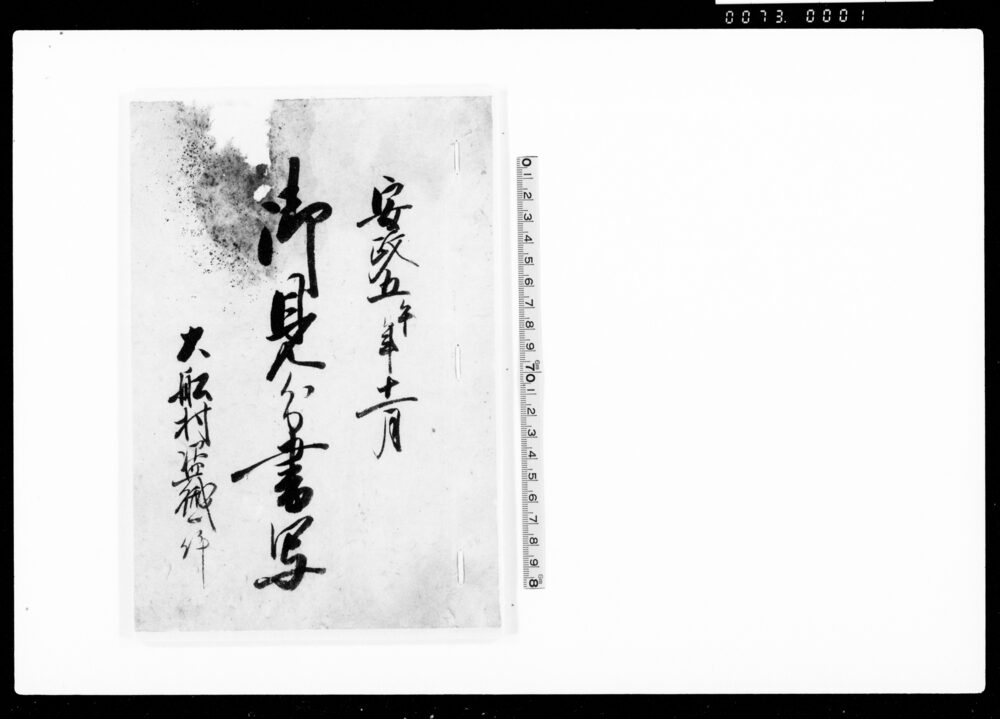 0073. 0001
安政五午年十一月
御見分書写
大船村盗賊一件
0 1 2 3 4 5 6 7 8 9 10 1 2 3 4 5 6 7 8 9